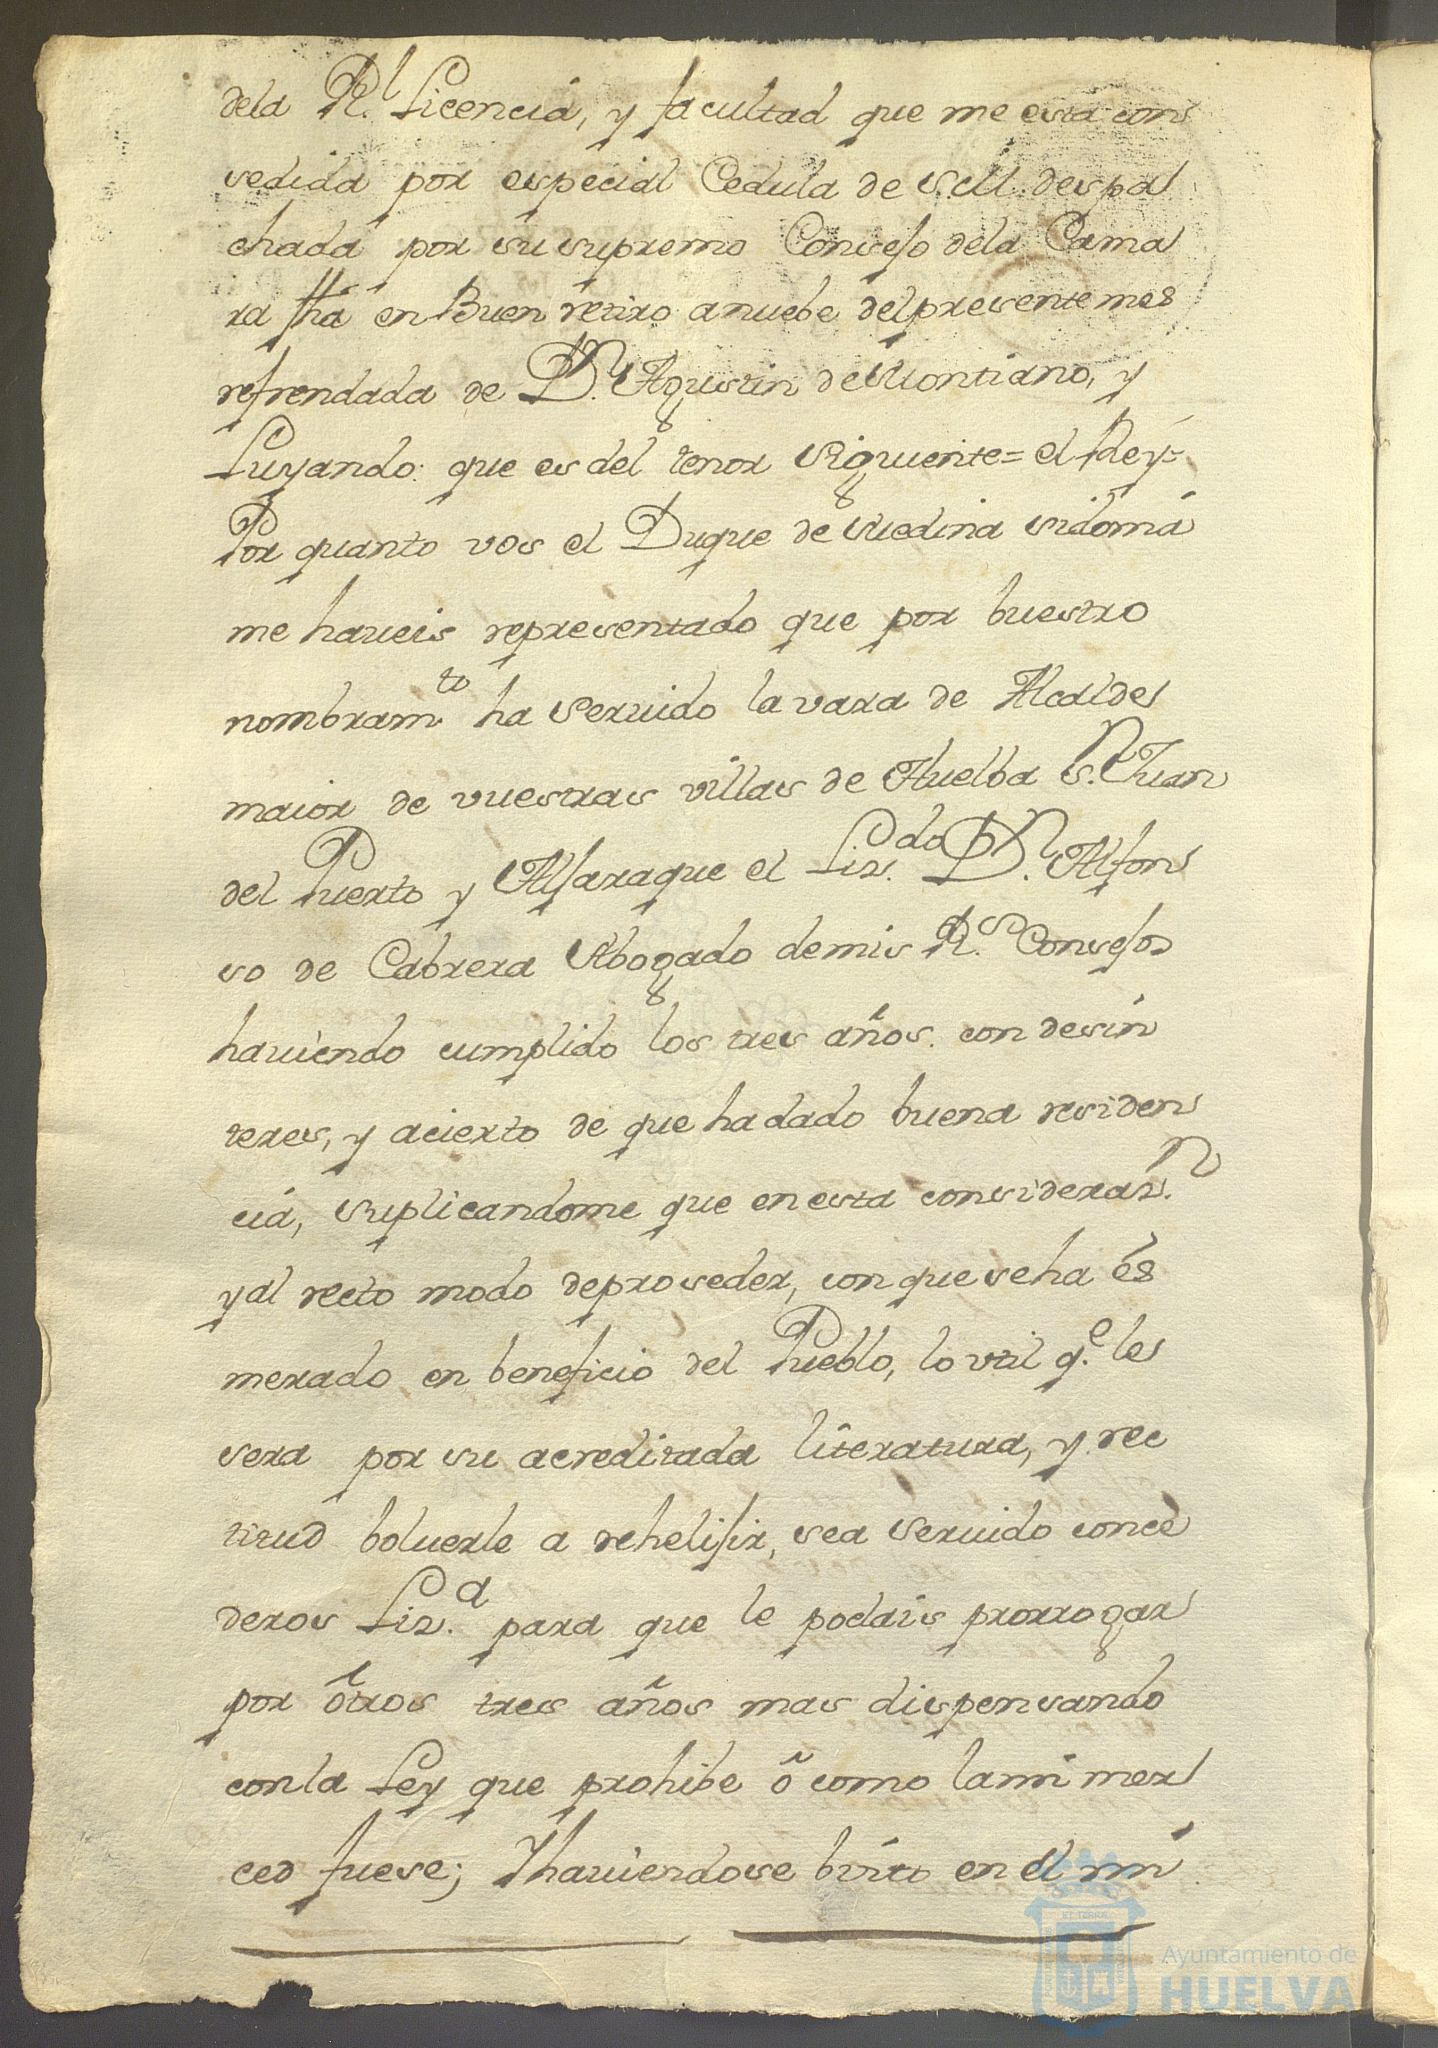 dela R.l Licencia, y facultad que me esta con
sedida por especial Cedula de S.M. despa
chada por su supremo Consejo dela Cama
ra fha en Buen retiro a nuebe del presente mes
refrendada de D.n Agustin de Montiano, y
Luyando: que es del tenor siguiente = el Rey =
Por quanto vos el Duque de Medina sidonia
me haueis representado que por buestro
nombram.to ha seruido la vara de Alcalde
maior de vuestras villas de Huelba S.n Juan
del Puerto y Alfaraque el Liz.do D.n Alfon
so de Cabrera Abogado de mis R.s Consejos
hauiendo cumplido los tres años con desin
teres, y acierto de que ha dado buena residen
cia, suplicandome que en esta consideraz.n
y al recto modo de proseder, con que se ha es
merado en beneficio del Pueblo, lo vtil q.e les
sera por su acreditada literatura, y rec
titud boluerle a rehelijir, sea seruido conce
deros Liz.a para que le podais prorrogar
por otros tres años mas dispensando
con la Ley que prohibe ô como la mi mer
ced fuese; Y hauiendose bisto en el mi
Ayuntamiento de
HUELVA